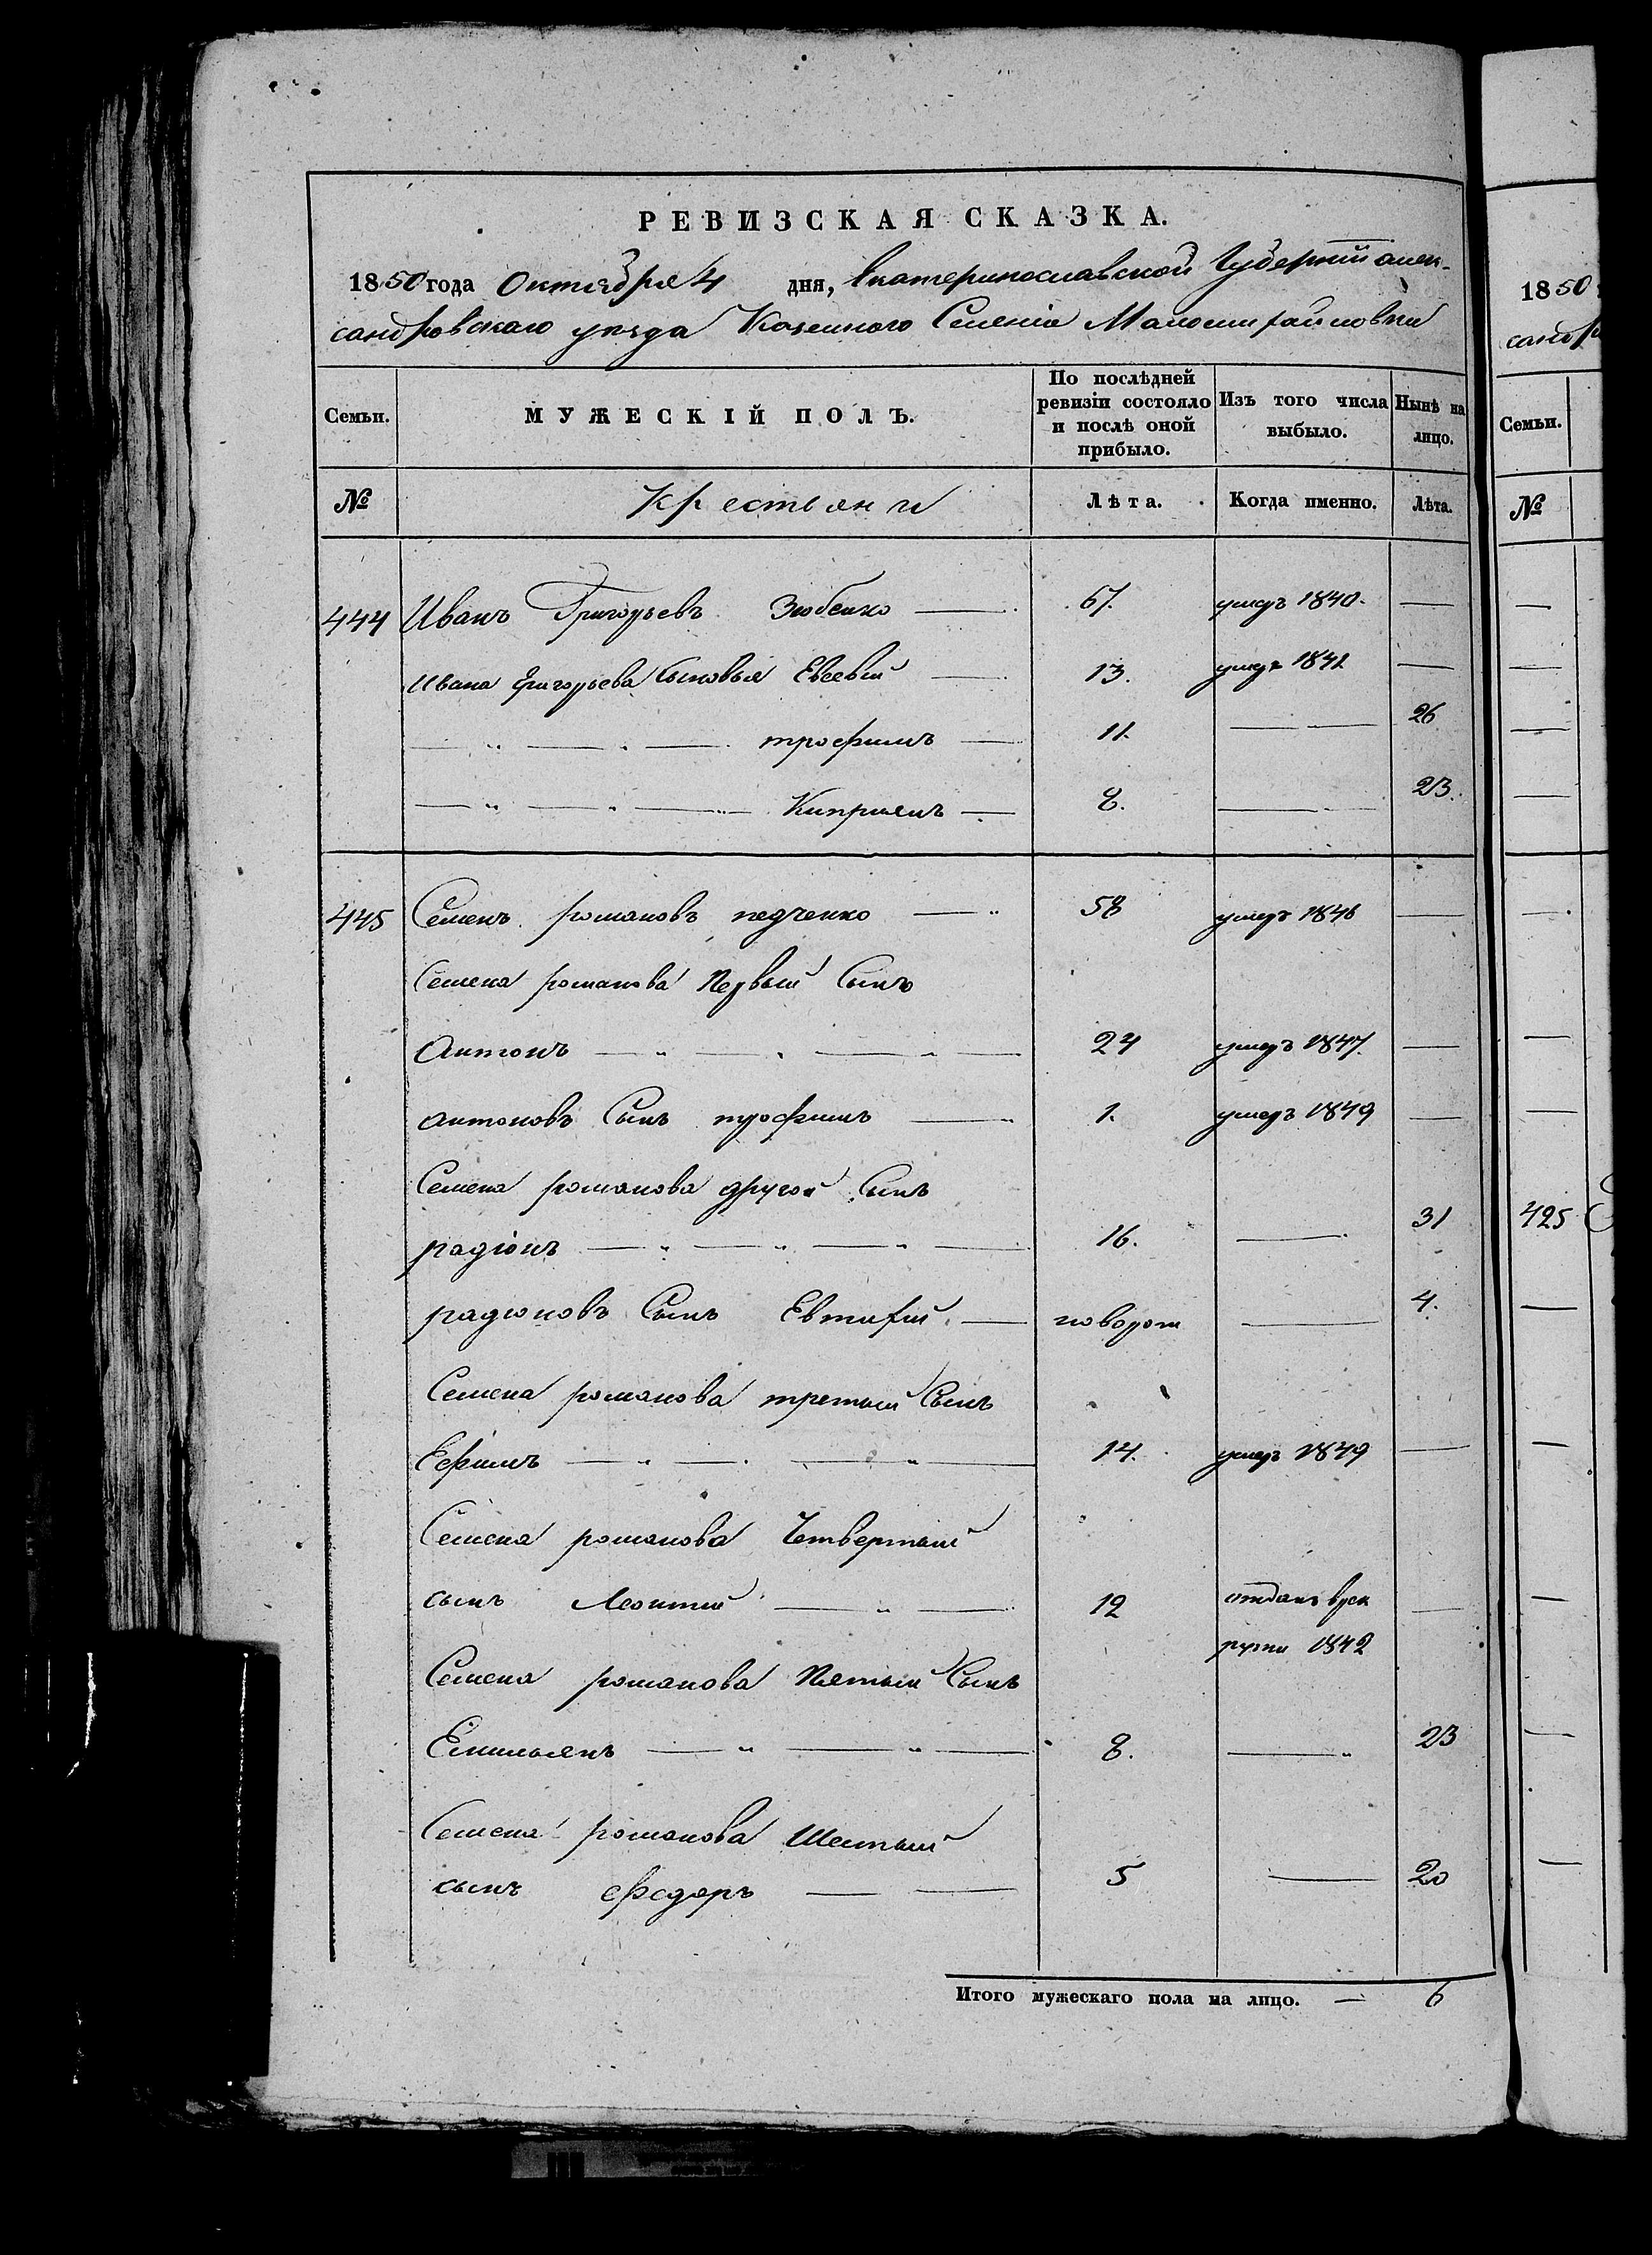 РЕВИЗСКАЯ СКАЗКА.
1850 года Октября 4 дня, Екатеринославской Губерніи алек-
сандровскаго уезда Казенного Селенія Маломихайловки
Семьи. МУЖЕСКІЙ ПОЛЪ. По послѣдней ревизіи состояло и послѣ оной прибыло. Изъ того числа выбыло. Нынѣ на лицо.
№ Крестьяни Лѣта. Когда именно. Лѣта.
444 Иванъ Григорьевъ Зюбенко — 67. умеръ 1840. —
Ивана Григорьева Сыновья Евсевій — 13. умеръ 1841 —
— " — " — трофимъ — 11. — 26
— " — " — Киприянъ — 8. — 23.
445 Семенъ романовъ педченко — " 58 умеръ 1846 —
Семена романова Первый Сынъ
Антонъ — " — " — " — 24 умеръ 1847. —
антоновъ Сынъ трофимъ — 1. умеръ 1849 —
Семена романова другой Сынъ
радіонъ — " — " — " — 16. — 31
радионовъ Сынъ Евтифій — новорож — 4.
Семена романова третьий Сынъ
Ефимъ — " — " — " — 14. умеръ 1849 —
Семена романова Четвертый
сынъ Леонтий — " — 12 отданъ врек —
рути 1842
Семена романова Пятый Сынъ
Емильянъ — " — " — 8. — " 23
Семена романова Шестый
сынъ федоръ — — 5 — 20
Итого мужескаго пола на лицо. — 6
1850
санд
Семьи.
№
425